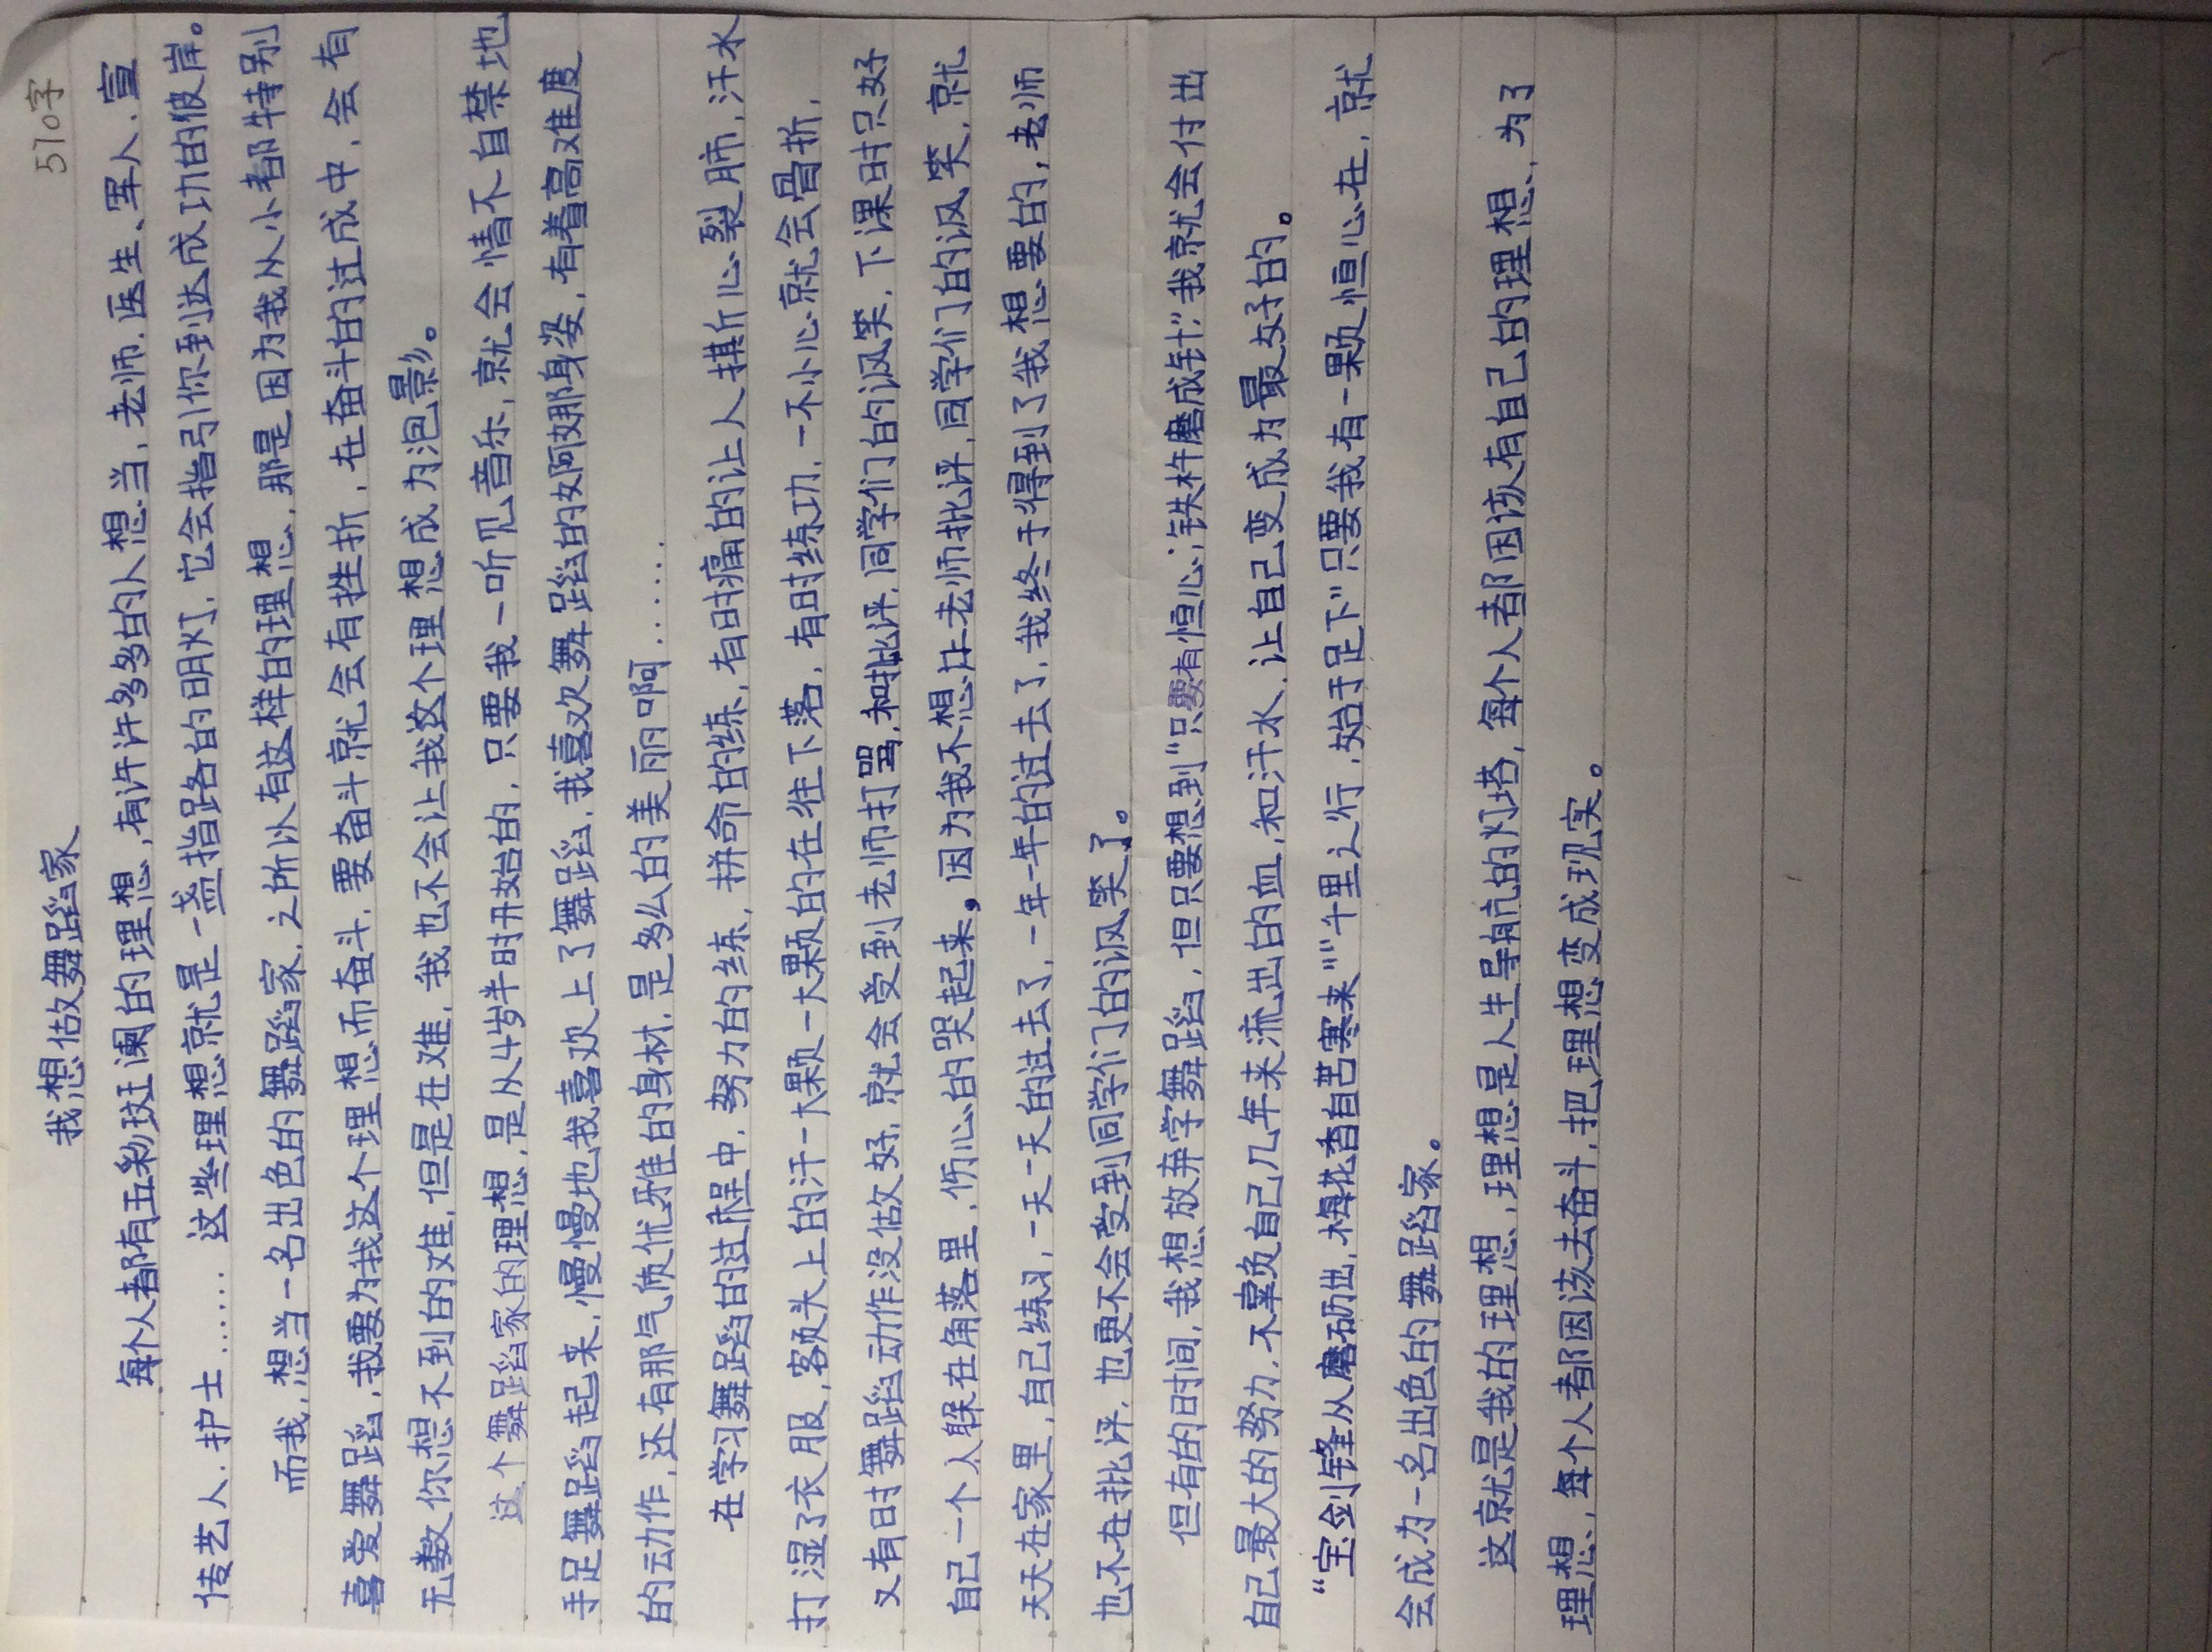 510字
我想估故舞蹈家
每个人都有五彩斑谰的理想,有许许多多的人想当,老师.医生、军人.宣
传艺人.护士……这些理想就是一盏指路的明灯.它会指引你到达成功的彼岸。
而我,想当一名出色的舞蹈家.之所以有这样的理想,那是因为我从小都特别
喜爱舞蹈,我要为我这个理想而奋斗.要奋斗就会有挫折,在奋斗的过成中,会有
无数你想不到的难,但是在难,我也不会让我这个理想成为泡影。
这个舞蹈家的理想,是从4岁半时开始的,只要我一听见音乐,就会情不自禁地
手足舞蹈起来,慢慢地我喜欢上了舞蹈.我喜欢舞蹈的婀娜身姿,有着高难度
的动作,还有那气质优雅的身材.是多么的美丽啊……
在学习舞蹈的过程中,努力的练,拼命的练,有时痛的让人撕心裂肺,汗水
打湿了衣服,额头上的汗一大颗一大颗的在往下落,有时练功,一不小心就会骨折,
又有时舞蹈动作没估故好.就会受到老师打骂,和批评.同学们的讽笑,下课时只好
自己一个人躲在角落里,伤心的哭起来。因为我不想让老师批评,同学们的讽笑,就
天天在家里,自己练习,一天一天的过去了,一年一年的过去了,我终于得到了我想要的,老师
也不在批评,也更不会受到同学们的讽笑了。
但有的时间,我想放弃学舞蹈,但只要想到“只要有恒心,铁杵磨成针”我就会付出
自己最大的努力,不辜负自己几年来流出的血,和汗水,让自己变成为最好的。
“宝剑锋从磨砺出,梅花香自苦寒来”“千里之行,始于足下”只要我有一颗恒心在,就
会成为一名出色的舞蹈家。
这就是我的理想,理想是人生导航的灯塔,每个人都因该有自己的理想、为了
理想,每个人都因该去奋斗,把理想变成现实。